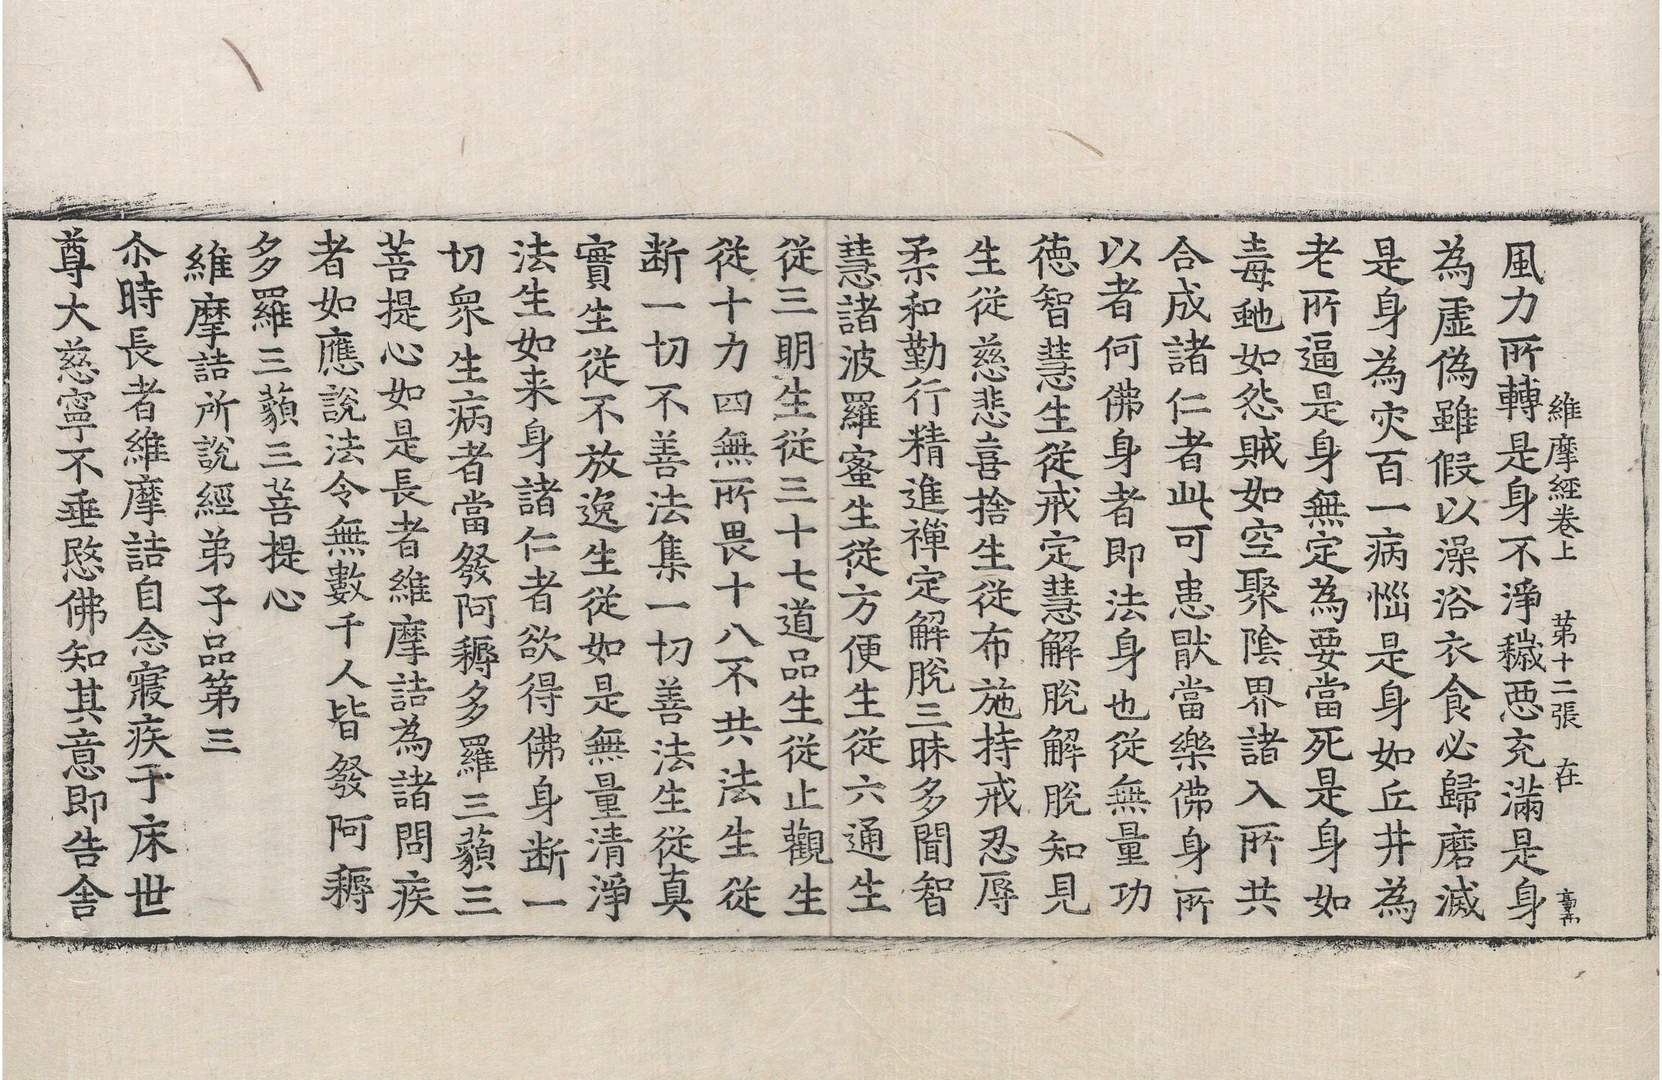 維摩經卷上 第十二張 在
風力所轉是身不淨穢惡充滿是身
為虛偽雖假以澡浴衣食必歸磨滅
是身為灾百一病惱是身如丘井為
老所逼是身無定為要當死是身如
毒虵如怨賊如空聚陰界諸入所共
合成諸仁者此可患猒當樂佛身所
以者何佛身者即法身也從無量功
德智慧生從戒定慧解脫解脫知見
生從慈悲喜捨生從布施持戒忍辱
柔和勤行精進禪定解脫三昧多聞智
慧諸波羅蜜生從方便生從六通生
從三明生從三十七道品生從止觀生
從十力四無所畏十八不共法生從
断一切不善法集一切善法生從真
實生從不放逸生從如是無量清淨
法生如来身諸仁者欲得佛身断一
切衆生病者當發阿耨多羅三藐三
菩提心如是長者維摩詰為諸問疾
者如應說法令無數千人皆發阿耨
多羅三藐三菩提心
維摩詰所說經弟子品第三
尒時長者維摩詰自念寢疾于床世
尊大慈寧不垂愍佛知其意即告舍